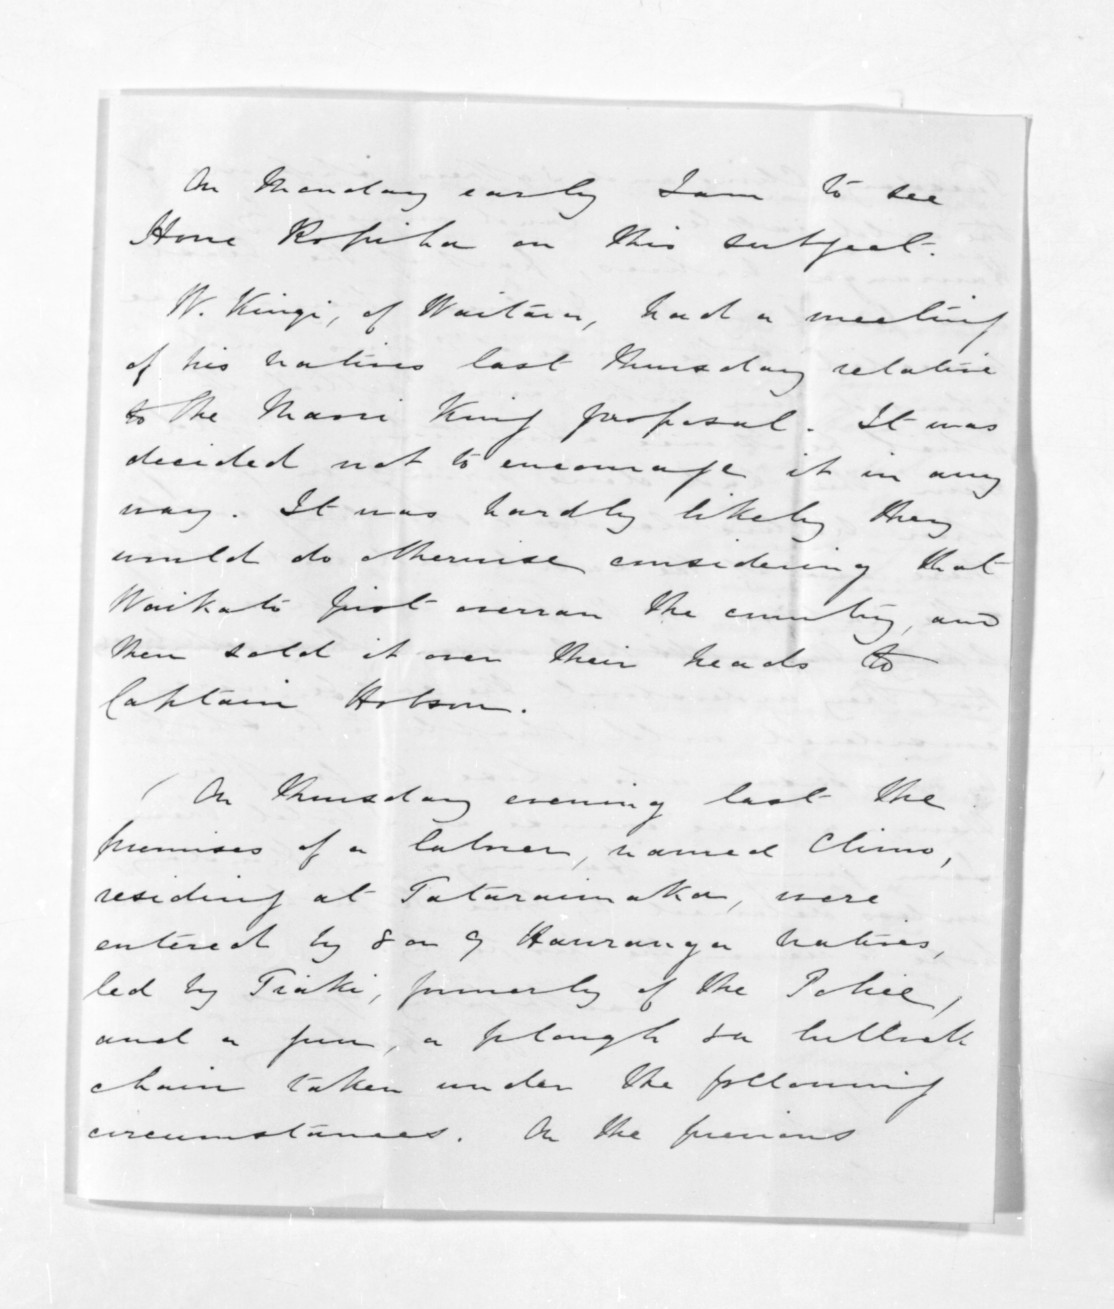 On Monday early I am to see
Hone Ropiha on this subject.
W. Kingi, of Waitara, had a meeting
of his natives last Thursday relative
to the Maori King proposal. It was
decided not to encourage it in any
way. It was hardly likely they
would do otherwise considering that
Waikato first overran the country, and
then sold it over their heads to
Captain Hobson.
( On Thursday evening last the
premises of a laborer, named Climo,
residing at Tataraimaka, were
entered by 8 or 9 Hauranga natives,
led by Tiaki, formerly of the Police,
and a gun, a plough & a bullock
chain taken under the following
circumstances. On the previous